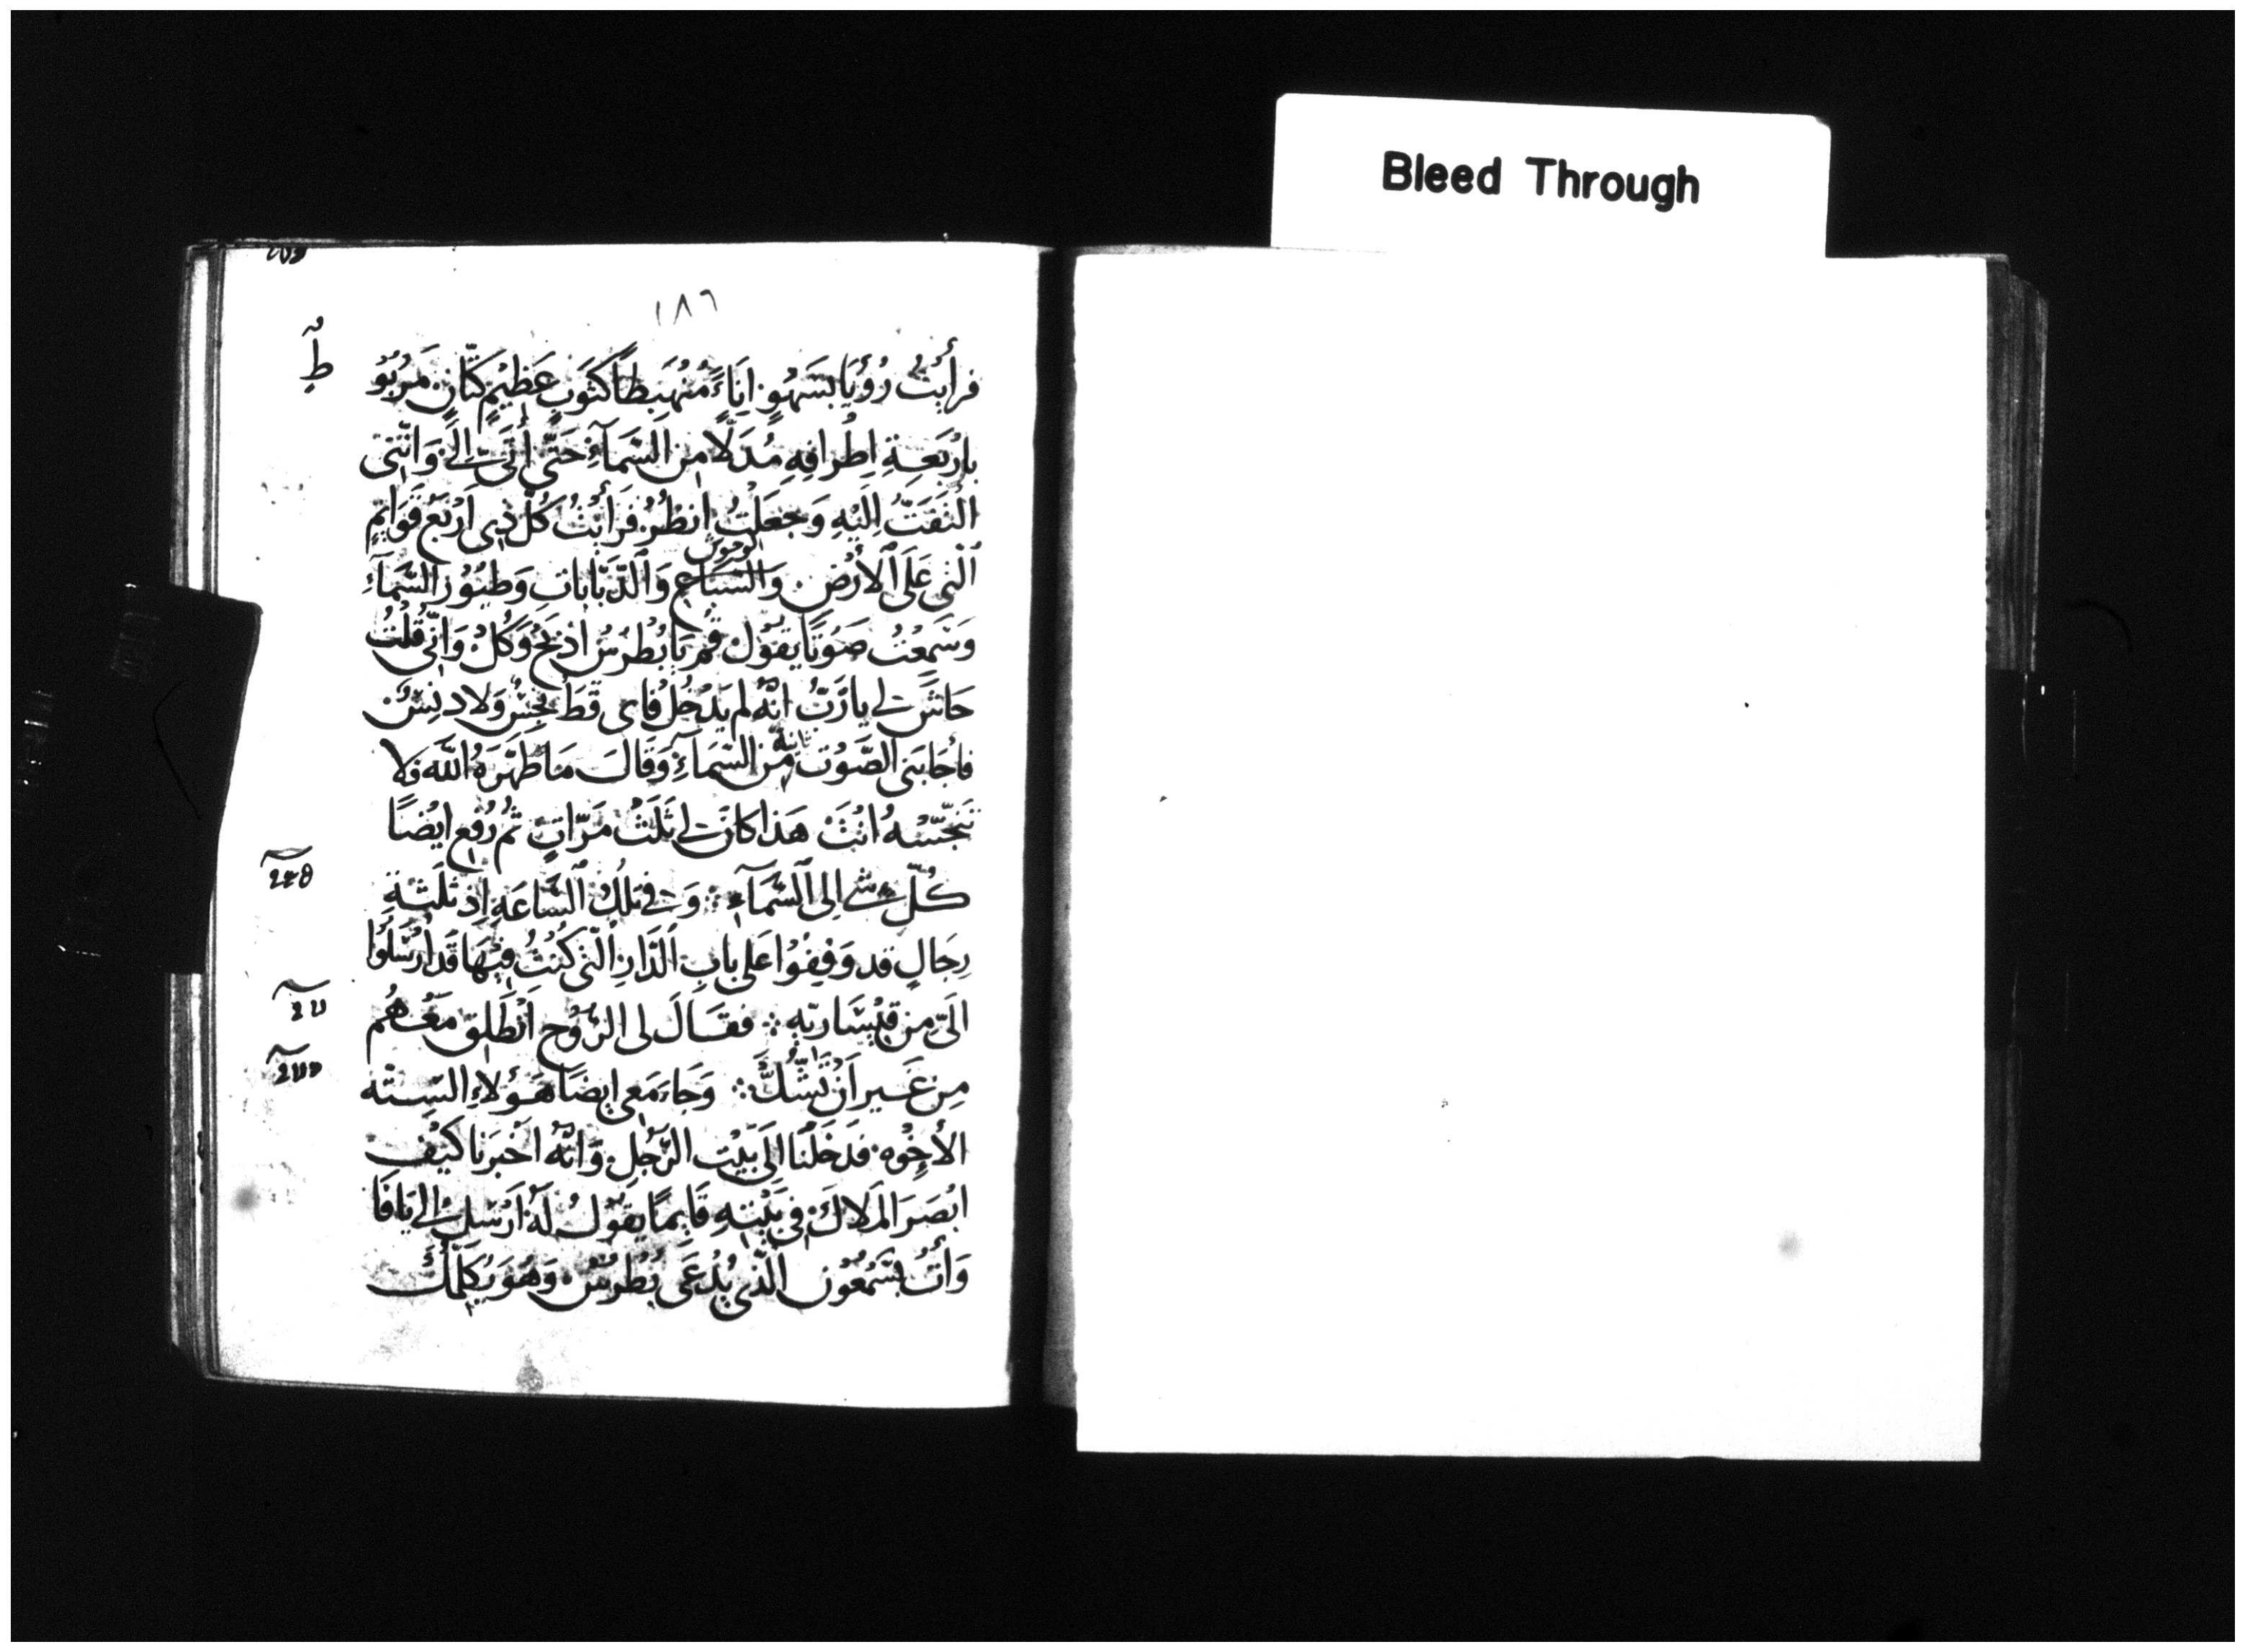 Bleed Through
١٨٦
فرأيْتُ رُؤْيَا بسَهْوٍ اِنَاءً مُنْهَبِطًا كثَوبٍ عَظيْمٍ كتّانٍ مَربُوْ
بارْبَعَةِ اِطْرافِهِ مُدَلًّا مِن السّمَآءِ حَتَّي أتَى اِلَيَّ وَاِنّنِى
الْتَفَتُّ اِلَيْهِ وَجَعَلْتُ انْظُرُ فَرَأيْتُ كُلَّ ذِى اَرْبَع قَوَايِمٍ
الوحوش
الّتى عَلَى الأَرْضِ وَالسّبَاع وَالدّبّابَاتِ وَطيُوْرَ السَّمَآءِ
وَسَمِعْتُ صَوْتًا يَقوْل قُم يَا بُطْرسُ اذْبَحْ وَكُلْ وَانّى قُلْتُ
حَاشَ لى يا رَبُّ انّهُ لم يَدْخُل فاى قَطّ نجِسٌ وَلا دنِسٌ
فاجَابَنى الصَّوْت ثانيه مِّن السّمآءِ وَقَالَ مَا طَهّرَهُ اللّه فَلا
تنَجّسْهُ انْتَ هَذا كانَ لى ثَلَثَ مَرّاتٍ ثُم رُفِع ايْضًا
كُلّ شى اِلى السَّمَآءِ ⁘ وَفى تلْكَ السّاعَةِ اِذ ثَلَثَةِ
رِجَالٍ قد وَقِفُوْا عَلى بابِ الدَّارِ الّتى كُنْتُ فِيْهَا قَد ارْسَلُوْا
الَىَّ مِن قيْسَاريّه ⁘ فقَالَ لى الرّوُح اَنْطَلِق مَعْهُم
مِن غَير اَنْ تَشُكَّ ⁘ وَجَاءَ مَعى ايضًا هَؤلاءِ السِتّه
الأخْوه فدَخَلْنَا الَى بَيْت الرَّجُل وَانّهُ اَخْبَرنَا كيْف
ابْصَرَ المَلاكَ في بَيْتِهِ قَايمًا يقوْل لَهُ اَرْسِل الى يَافَا
وَأتِ بسَمْعُوْن الّذى يُدْعَى بُطْرسْ وَهُوَ يُكَلّمُكَ